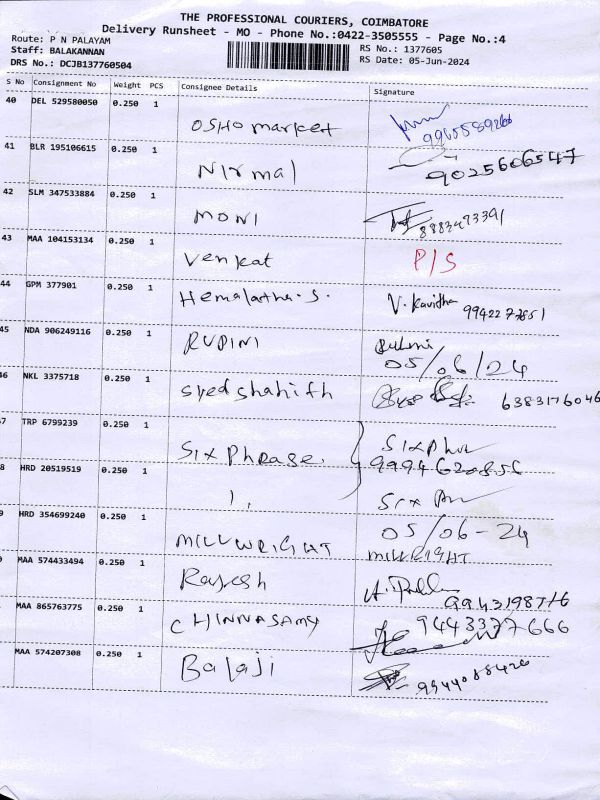 THE PROFESSIONAL COURIERS, COIMBATORE
Delivery Runsheet - MO - Phone No.:0422-3505555 - Page No.:4
Route: P N PALAYAM
Staff: BALAKANNAN
DRS No.: DCJB137760504
RS No.: 1377605
RS Date: 05-Jun-2024
S No Consignment No Weight PCS Consignee Details Signature
40 DEL 529580050 0.250 1 OSHO market
41 BLR 195106615 0.250 1 Nirmal 9025606547
42 SLM 347533884 0.250 1 MONI
43 MAA 104153134 0.250 1 Venkat P/S
44 GPM 377901 0.250 1 Hemalatha.S. V. Kavitha
45 NDA 906249116 0.250 1 RUPINI 05/06/24
46 NKL 3375718 0.250 1 syed shahith 6383176046
7 TRP 6799239 0.250 1 SIX PHRASE. 9994620856
8 HRD 20519519 1 ,,
9 HRD 354699240 0.250 1 MILLWRIGHT 05/06-24 MILLRIGHT
MAA 574433494 0.250 1 Rajesh
MAA 865763775 0.250 1 CHINNASAMY 9443377666
MAA 574207308 0.250 1 Balaji